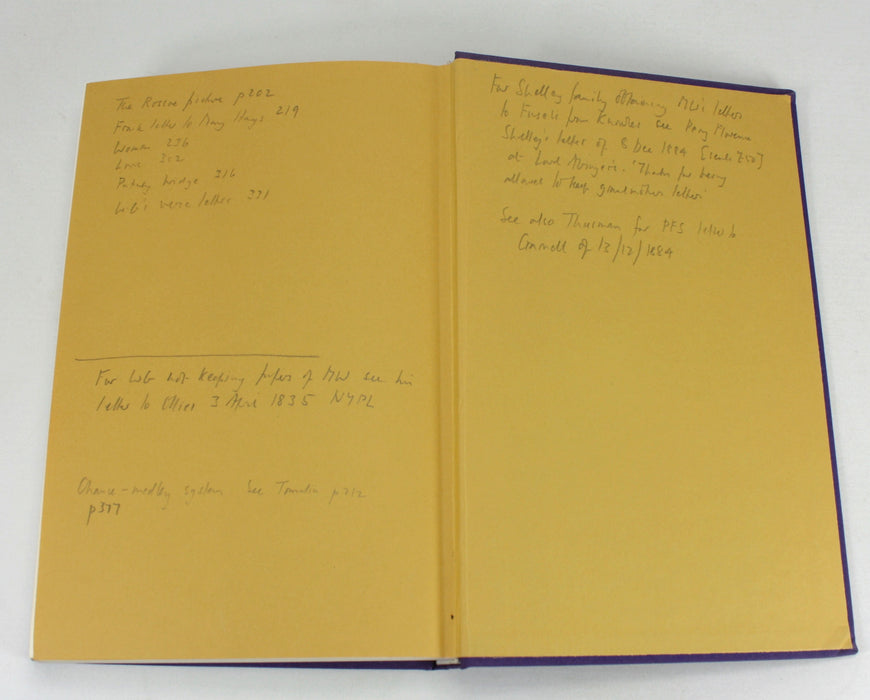 The Roscoe picture p202
From letter to Mary Hays 219
Woman 236
Love 312
Putney bridge 316
WG's verse letter 331
For WG not keeping papers of MW see his
letter to Ollier 3 April 1835 NYPL
Chance-medley system See Tomalin p212
p377
For Shelley family obtaining MW's letters
to Fuseli from Knowles see Percy Florence
Shelley's letter of 8 Dec 1884
at Lord Abinger's. 'Thanks for being
allowed to keep grandmother's letters'
See also Thurman for PFS letter to
of 13/12/1884